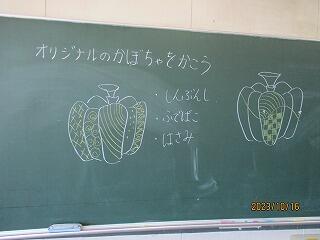 オリジナルのかぼちゃをかこう
・しんぶんし
・ふでばこ
・はさみ
2023/10/16